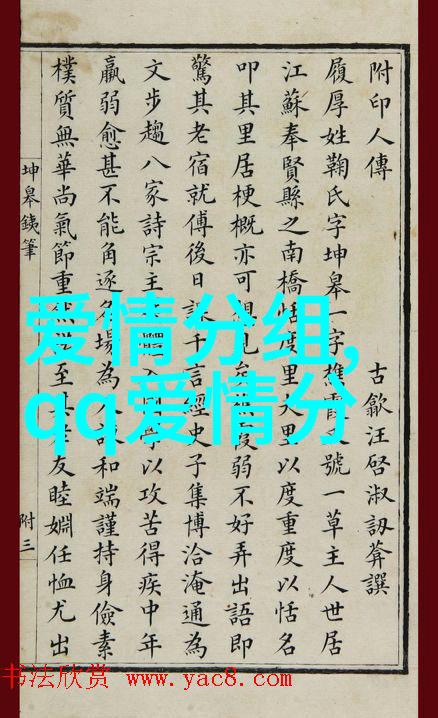 附印人傳
古歙汪啓淑訒葊譔
履厚姓鞠氏字坤皋一字樵霞又號一草主人世居
江蘇奉賢縣之南橋恬度里夫里以度重度以恬名
叩其里居梗概亦可
弱不好弄出語即
驚其老宿就傅後日課千言經史子集博洽淹通為
文步趨八家詩宗主
學以攻苦得疾中年
羸弱愈甚不能角逐名場為人
和端謹持身儉素
樸質無華尚氣節重
至
友睦婣任恤尤出
坤皋鐵筆
附三
爱情分组,
qq爱情分
书法欣赏 www.yac8.com